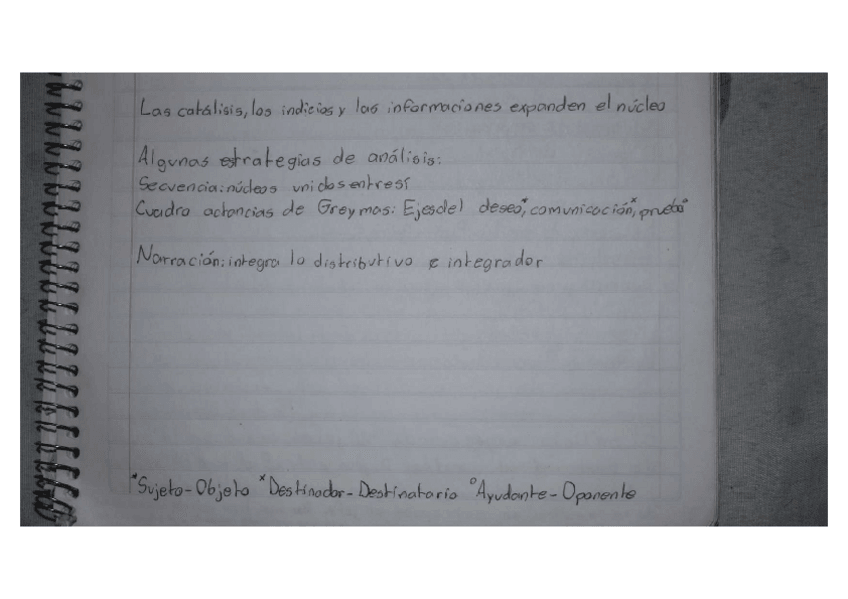 Las catálisis, los indicios y las informaciones expanden el núcleo
Algunas estrategias de análisis:
Secuencia: núcleos unidos entre sí
Cuadro actancias de Greymas: Ejes del deseo*, comunicaciónˣ, prueba°
Narración: integra lo distributivo e integrador
*Sujeto-Objeto ˣDestinador-Destinatario °Ayudante-Oponente